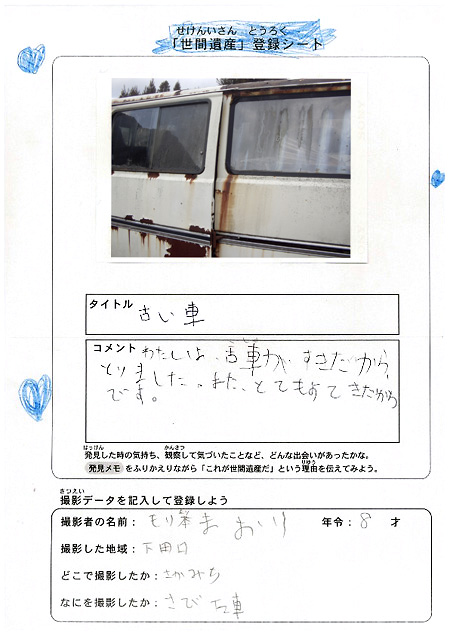 せけんいさん とうろく
「世間遺産」登録シート
タイトル
古い車
コメント わたしは、古車が、すきだから
とりました。また、とてもすてきだから
です。
はっけん かんさつ
発見した時の気持ち、観察して気づいたことなど、どんな出会いがあったかな。
りゆう
発見メモ をふりかえりながら「これが世間遺産だ」という理由を伝えてみよう。
さつえい
撮影データを記入して登録しよう
撮影者の名前: まおり 年令: 8 才
撮影した地域: 下田口
どこで撮影したか: さかみち
なにを撮影したか: さび 古車